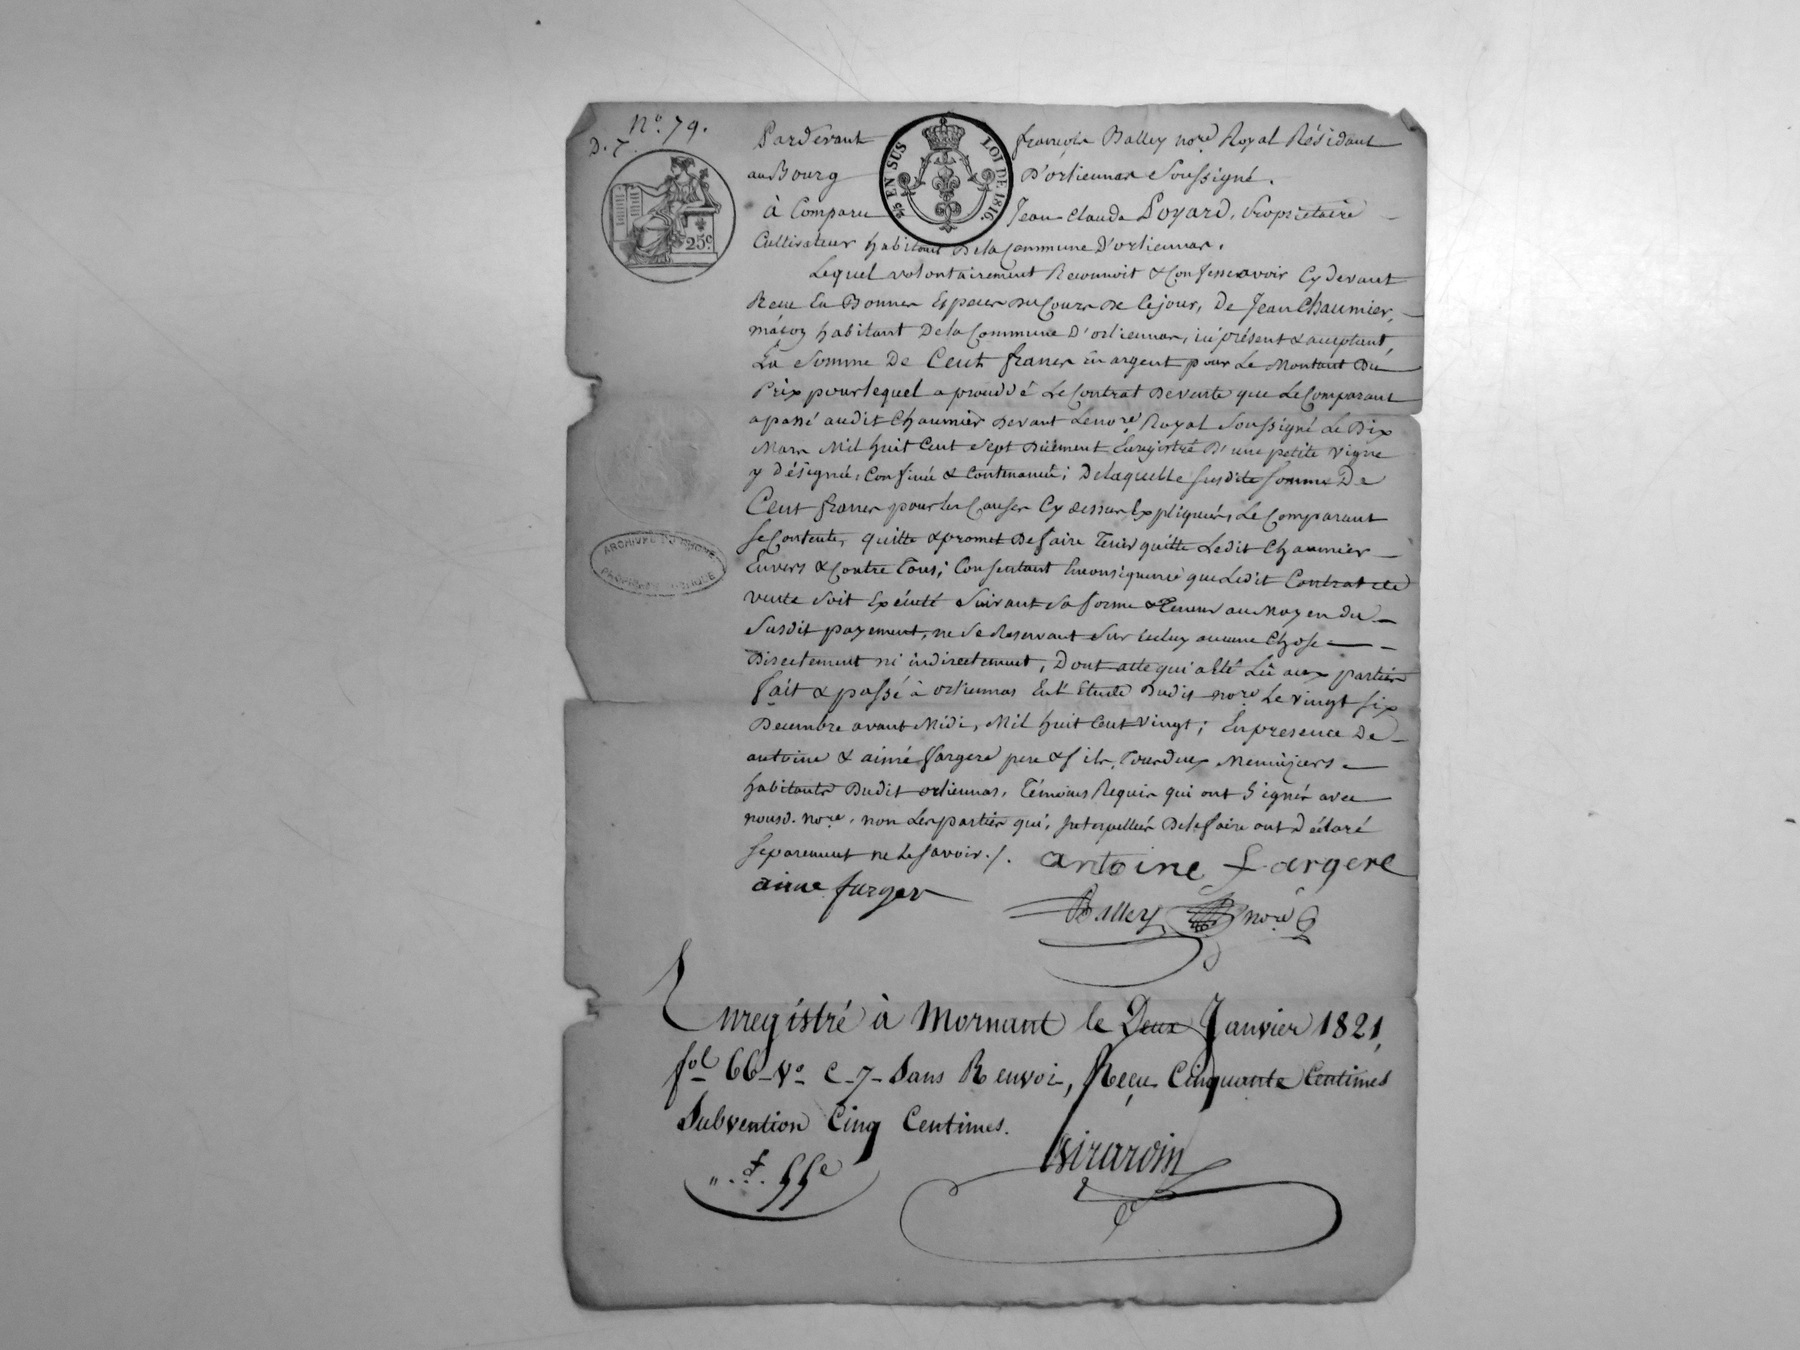 N.º 79.
D. 7.
25 EN SUS LOI DE 1816
25ᶜ
Pardevant françois Balley noʳᵉ Royal Résidant
au Bourg D'orliennas Soussigné.
à Comparu Jean Claude Poyard, propriétaire
Cultivateur habitant De la Commune D'orliennas.
Lequel volontairement Reconnoit & Confesse avoir Cy devant
Reçu En Bonnes Espèces du Cours de Cejour, De Jean Chaumier,
maçon habitant De la Commune D'orliennas, ici présent & acceptant,
La Somme De Cent francs en argent pour Le Montant Du
Prix pour lequel a procédé Le Contrat De vente que Le Comparant
a passé audit Chaumier Devant Le noʳᵉ Royal Soussigné Le Dix
Mars Mil huit Cent Sept Dûement Enregistré D'une petite vigne
y Désignée, Confinée & Contenancée; De laquelle susdite Somme De
Cent francs pour les Causes Cy dessus Expliquées, Le Comparant
se Contente, quitte & promet De faire Tenir quitte Ledit Chaumier
Envers & Contre Tous; Consentant Enconséquence que Ledit Contrat de
vente Soit Exécuté Suivant sa forme & Teneur au Moyen du
Susdit payement, ne se Reservant Sur iceluy aucune Chose
Directement ni indirectement, Dont acte qui a été Lû aux parties
fait & passé à orliennas En l'Etude Dudit noʳᵉ Le vingt Six
Decembre avant Midi, Mil huit Cent Vingt; En présence De
antoine & aimé fargere pere & fils, Tous deux Menuisiers
habitants Dudit orliennas, Témoins Requis qui ont Signés avec
nousd. noʳᵉ, non Les parties qui, Interpellées De le faire ont Déclaré
séparement ne Le savoir./. antoine fargere
aime farger
Balley noʳᵉ
ARCHIVES DU RHONE
PROPRIÉTÉ PUBLIQUE
Enregistré à Mornant le Deux Janvier 1821,
fol 66 Vº C 7 Sans Renvoi, Reçu Cinquante Centimes
Subvention Cinq Centimes.
" . f. 55ᶜ
Girardin